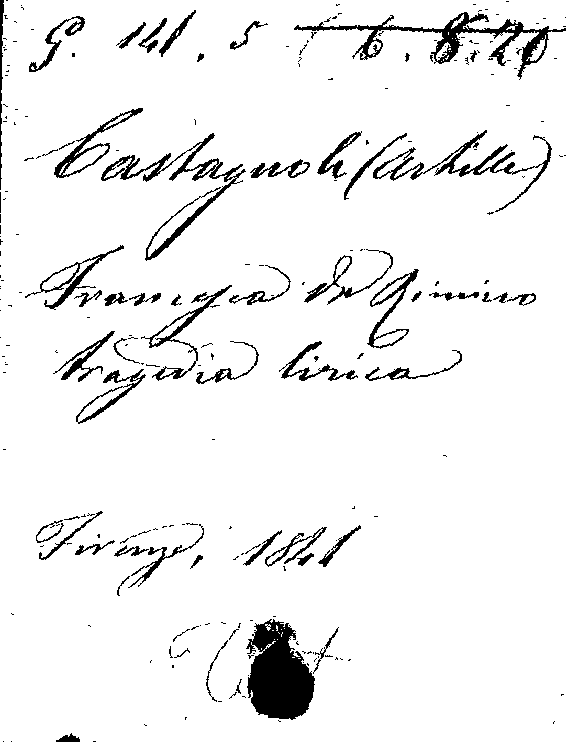 G. 141. 5 6. 8. 20
Castagnoli (Achille)
Francesca da Rimino
tragedia lirica
Firenze, 1841